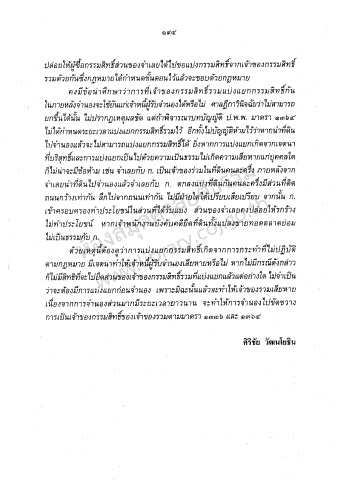 ๑๙๔
ปล่อยให้ผู้ซื้อกรรมสิทธิ์ส่วนของจำเลยได้ไปขอแบ่งกรรมสิทธิ์จากเจ้าของกรรมสิทธิ์
รวมด้วยกันซึ่งกฎหมายได้กำหนดขั้นตอนไว้แล้วจะชอบด้วยกฎหมาย
คงมีข้อน่าศึกษาว่าการที่เจ้าของกรรมสิทธิ์รวมแบ่งแยกกรรมสิทธิ์กัน
ในภายหลังจำนองจะใช้ยันแก่เจ้าหนี้ผู้รับจำนองได้หรือไม่ ศาลฎีกาวินิจฉัยว่าไม่สามารถ
ยกขึ้นได้นั้น ไม่ปรากฏเหตุผลชัด แต่ถ้าพิจารณาบทบัญญัติ ป.พ.พ. มาตรา ๑๓๖๔
ไม่ได้กำหนดระยะเวลาแบ่งแยกกรรมสิทธิ์รวมไว้ อีกทั้งไม่บัญญัติห้ามไว้ว่าหากนำที่ดิน
ไปจำนองแล้วจะไม่สามารถแบ่งแยกกรรมสิทธิ์ได้ ยิ่งหากการแบ่งแยกเกิดจากเจตนา
ที่บริสุทธิ์และการแบ่งแยกเป็นไปด้วยความเป็นธรรมไม่เกิดความเสียหายแก่บุคคลใด
ก็ไม่น่าจะมีข้อห้าม เช่น จำเลยกับ ก. เป็นเจ้าของรวมในที่ดินคนละครึ่ง ภายหลังจาก
จำเลยนำที่ดินไปจำนองแล้วจำเลยกับ ก. ตกลงแบ่งที่ดินกันคนละครึ่งมีส่วนที่ติด
ถนนกว้างเท่ากัน ลึกไปจากถนนเท่ากัน ไม่มีฝ่ายใดได้เปรียบเสียเปรียบ จากนั้น ก.
เข้าครอบครองทำประโยชน์ในส่วนที่ได้รับแบ่ง ส่วนของจำเลยคงปล่อยให้รกร้าง
ไม่ทำประโยชน์ หากเจ้าพนักงานบังคับคดียึดที่ดินทั้งแปลงขายทอดตลาดย่อม
ไม่เป็นธรรมกับ ก.
ด้วยเหตุนี้ต้องดูว่าการแบ่งแยกกรรมสิทธิ์เกิดจากการกระทำที่ไม่ปฏิบัติ
ตามกฎหมาย มีเจตนาทำให้เจ้าหนี้ผู้รับจำนองเสียหายหรือไม่ หากไม่มีกรณีดังกล่าว
ก็ไม่มีสิทธิที่จะไปยึดส่วนของเจ้าของกรรมสิทธิ์รวมที่แบ่งแยกแล้วแต่อย่างใด ไม่จำเป็น
ว่าจะต้องมีการแบ่งแยกก่อนจำนอง เพราะมิฉะนั้นแล้วจะทำให้เจ้าของรวมเสียหาย
เนื่องจากการจำนองส่วนมากมีระยะเวลายาวนาน จะทำให้การจำนองไปขัดขวาง
การเป็นเจ้าของกรรมสิทธิ์ของเจ้าของรวมตามมาตรา ๑๓๓๖ และ ๑๓๖๔
ศิริชัย วัฒนโยธิน